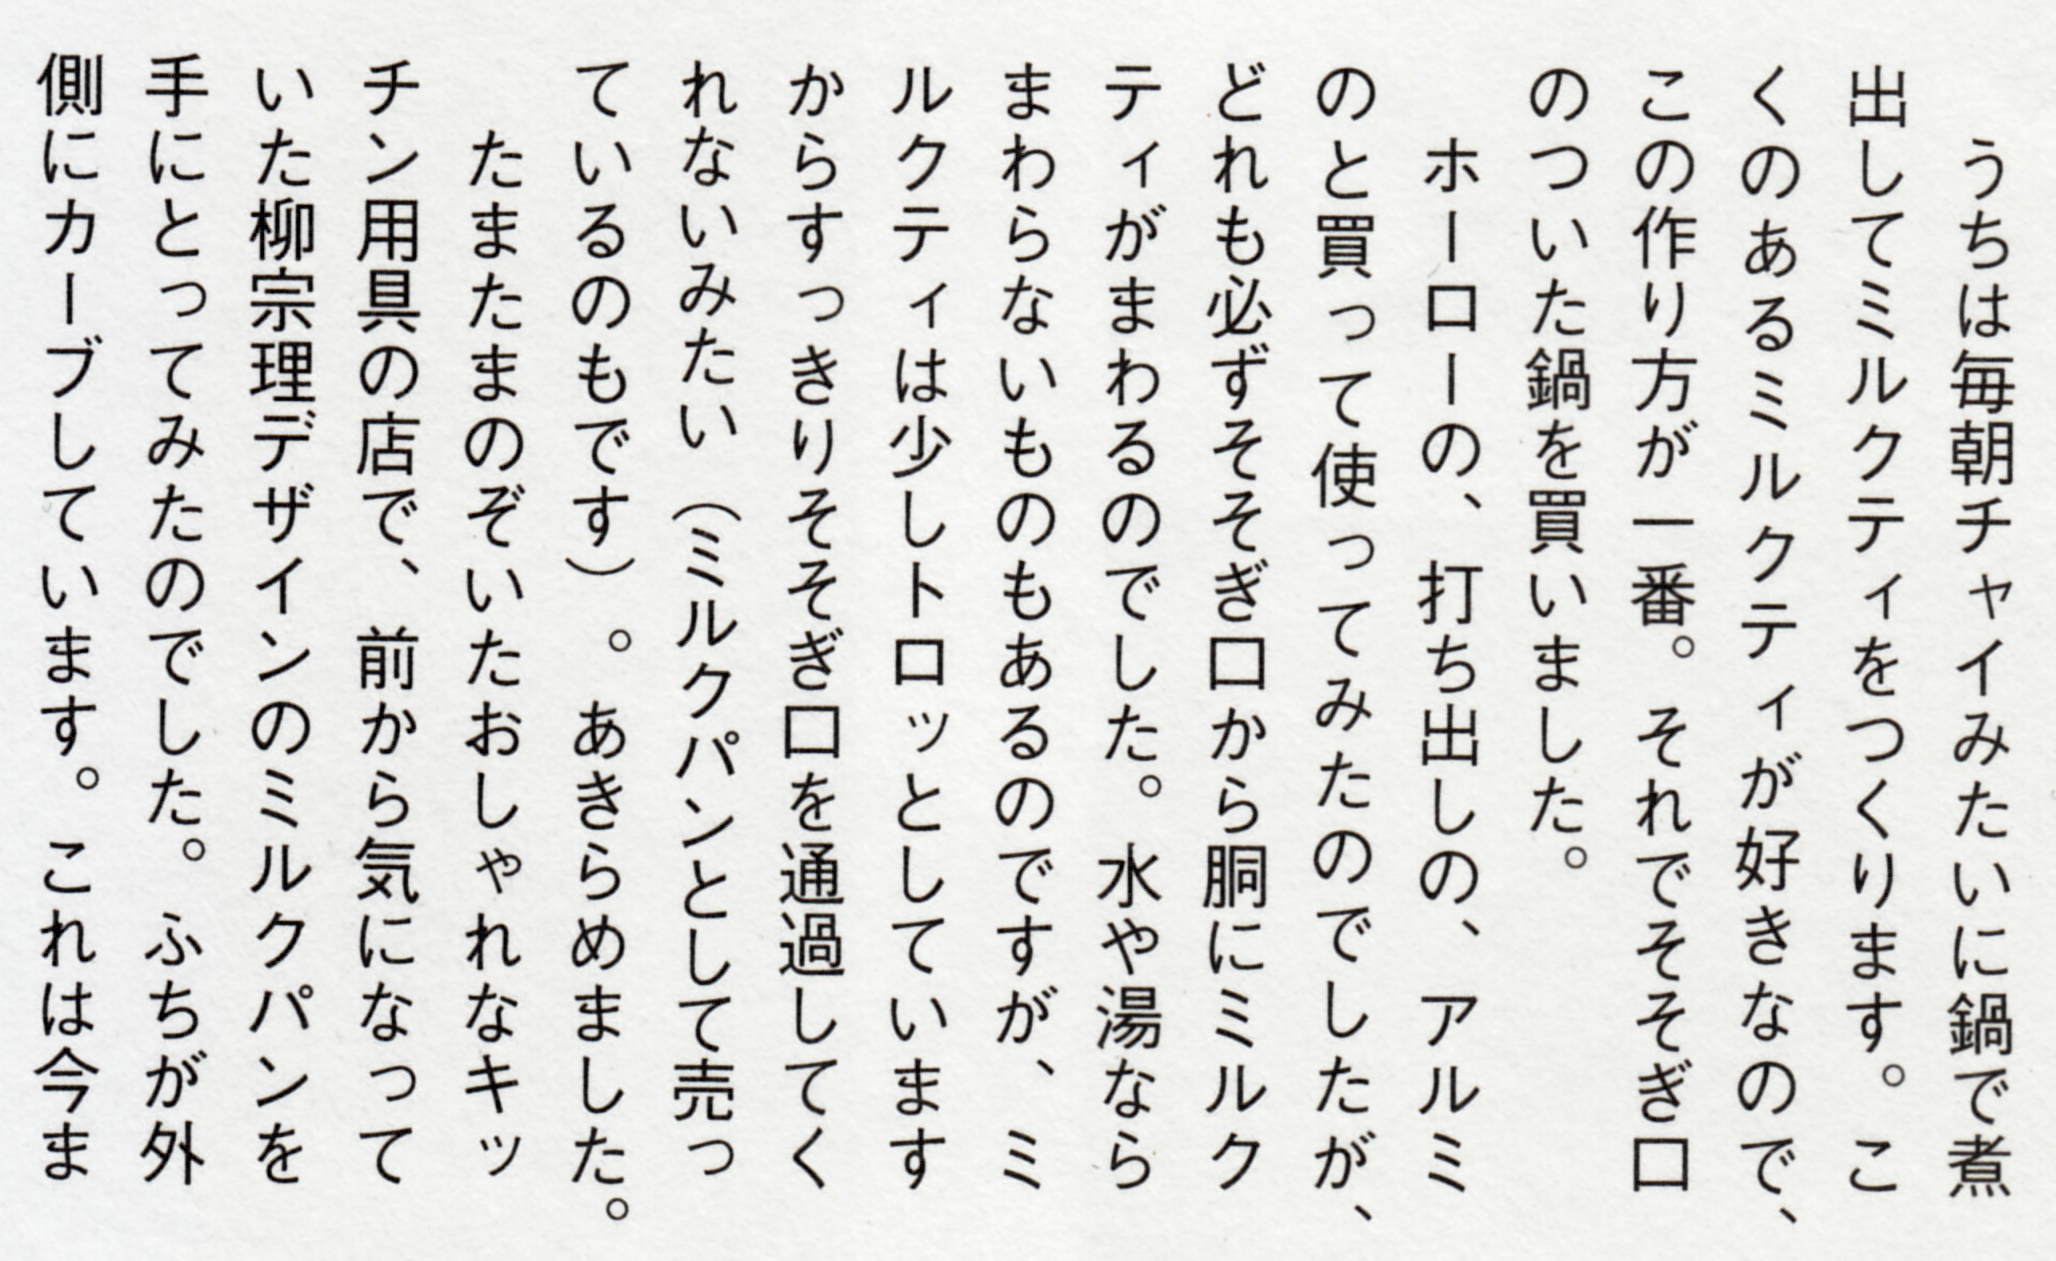 うちは毎朝チャイみたいに鍋で煮
出してミルクティをつくります。こ
くのあるミルクティが好きなので、
この作り方が一番。それでそそぎ口
のついた鍋を買いました。
　ホーローの、打ち出しの、アルミ
のと買って使ってみたのでしたが、
どれも必ずそそぎ口から胴にミルク
ティがまわるのでした。水や湯なら
まわらないものもあるのですが、ミ
ルクティは少しトロッとしています
からすっきりそそぎ口を通過してく
れないみたい（ミルクパンとして売っ
ているのもです）。あきらめました。
　たまたまのぞいたおしゃれなキッ
チン用具の店で、前から気になって
いた柳宗理デザインのミルクパンを
手にとってみたのでした。ふちが外
側にカーブしています。これは今ま